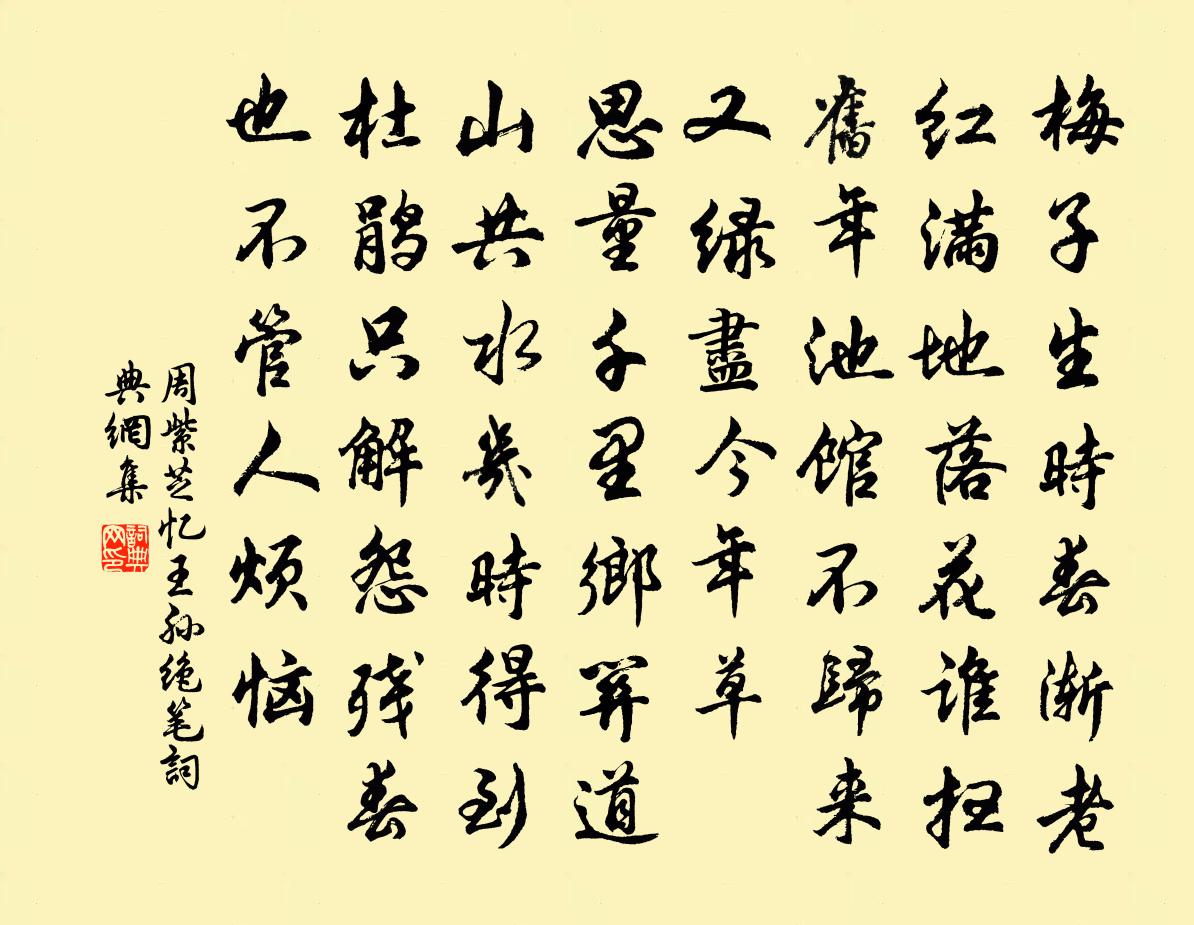 梅子生時春渐老
红满地落花谁扫
舊年池馆不歸来
又绿盡今年草
思量千里鄉關道
山共水幾時得到
杜鹃只解怨残春
也不管人烦恼
周紫芝忆王孙绝笔詞
典網集
詞典
网印